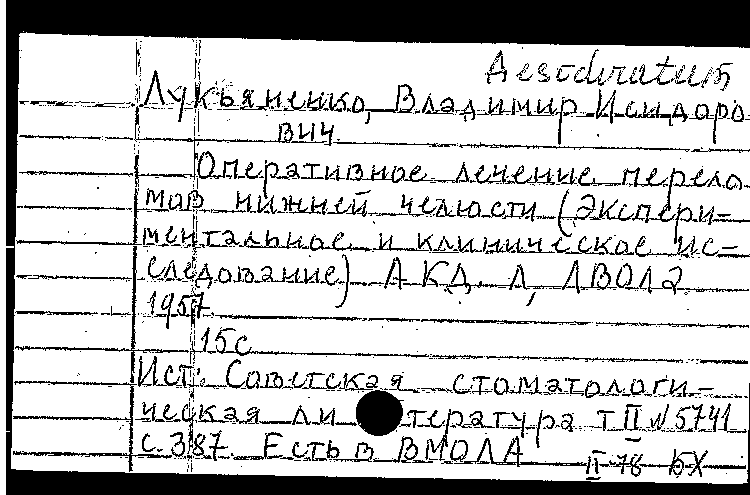 Desideratum
Лукьяненко, Владимир Исидоро
вич
Оперативное лечение перело
мов нижней челюсти (Экспери-
ментальное и клиническое ис-
следование) АКД. Л,
1957.
15с
Ист: Советская стоматологи-
ческая литература т II № 5741
с.387. Есть в ВМОЛА
II-78 БХ